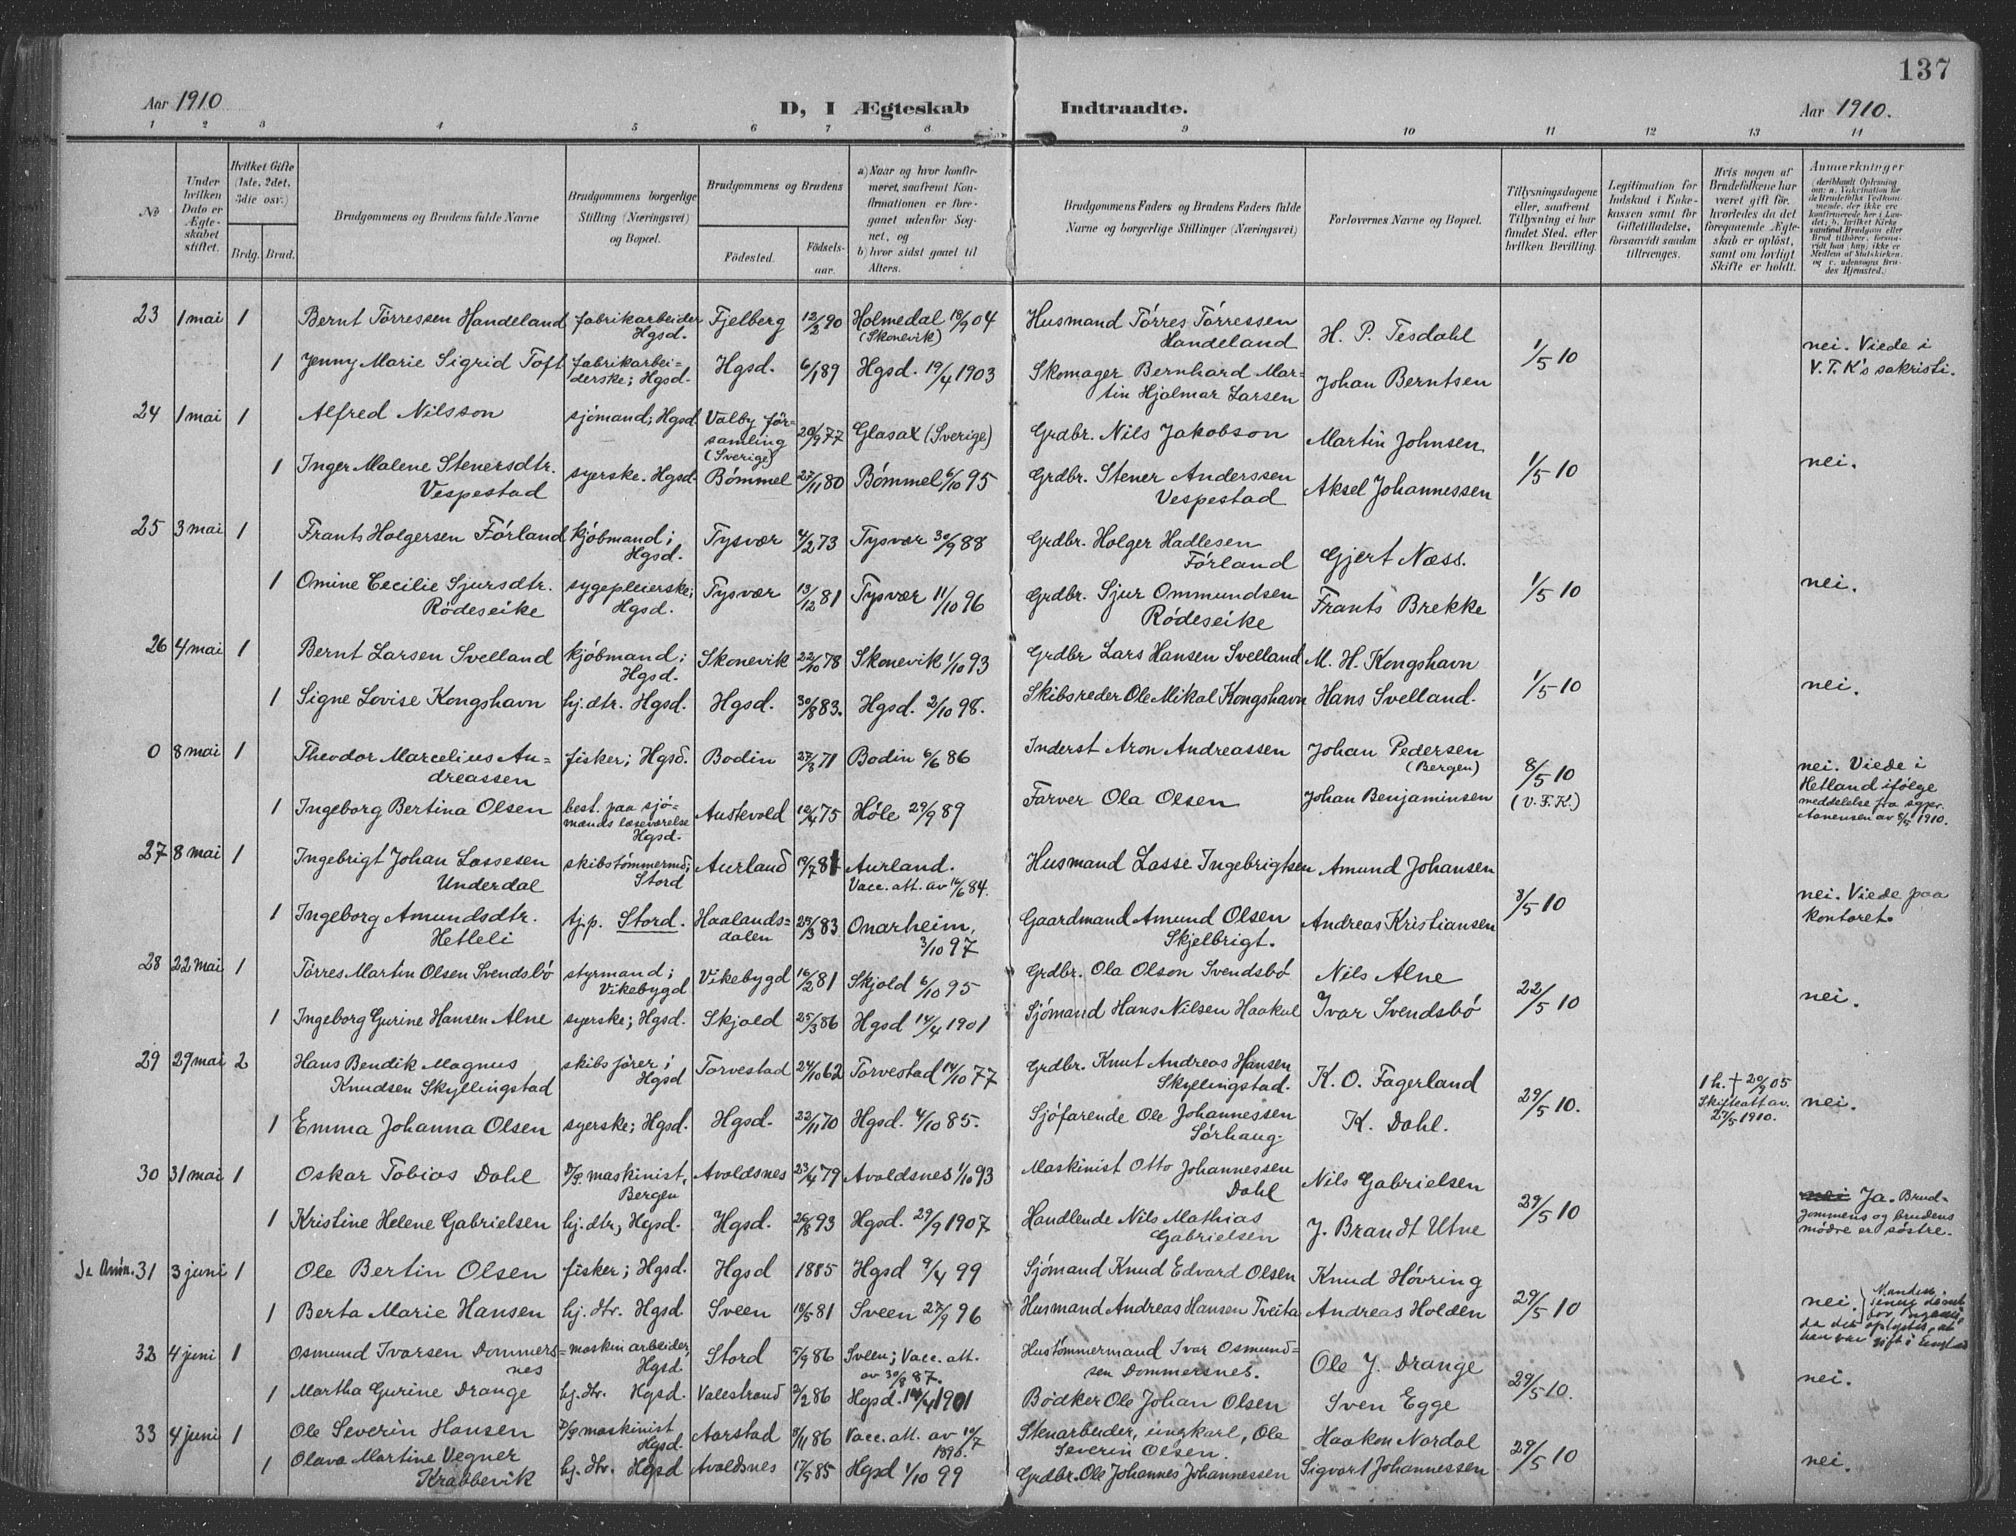 137
Aar 1910
D, I Ægteskab Indtraadte.
Aar 1910.
1 2 3 4 5 6 7 8 9 10 11 12 13 14
No
Under hvilken Dato er Ægteskabet stiftet.
Hvilket Gifte (1ste, 2det, 3die osv.)
Brdg. Brud.
Brudgommens og Brudens fulde Navne
Brudgommens borgerlige Stilling (Næringsvei) og Bopæl.
Brudgommens og Brudens
Födested.
Födselsaar.
a) Naar og hvor konfirmeret, saafremt Konfirmationen er foregaaet udenfor Sognet, og
b) hvor sidst gaaet til Alters.
Brudgommens Faders og Brudens Faders fulde Navne og borgerlige Stillinger (Næringsvei)
Forlovernes Navne og Bopæl.
Tillysningsdagene eller, saafremt Tillysning ei har fundet Sted, efter hvilken Bevilling.
Legitimation for Indskud i Enkekassen samt for Giftetilladelse, forsaavidt saadan tiltrænges.
Hvis nogen af Brudefolkene har været gift før, hvorledes da det foregaaende Ægteskab er opløst, samt om lovligt Skifte er holdt.
Anmærkninger
23 1 mai 1 Bernt Tørressen Handeland fabrikarbeider Hgsd. Fjelberg 12/2 90 Holmedal 18/9 04 (Skonevik) Husmand Tørres Tørressen Handeland H. P. Tesdahl
1 Jenny Marie Sigrid Toft fabrikarbeiderske; Hgsd. Hgsd. 6/1 89 Hgsd. 19/4 1903 Skomager Bernhard Martin Hjalmar Larsen Johan Berntsen 1/5 10 nei. Viede i V. F. K's sakristi.
24 1 mai 1 Alfred Nilsson sjømand; Hgsd Valby församling (Sverige) 20/9 77 Glasax (Sverige) Grdbr. Nils Jakobson Martin Johnsen
1 Inger Malene Stenersdtr. Vespestad syerske. Hgsd. Bømmel 27/11 80 Bømmel 6/10 95 Grdbr. Stener Anderssen Vespestad Aksel Johannessen 1/5 10 nei.
25 3 mai 1 Frants Holgersen Førland kjøbmand; Hgsd. Tysvær 4/2 73 Tysvær 30/9 88 Grdbr. Holger Hadlesen Førland Gjert Næss.
1 Omine Cecilie Sjursdtr. Rødeseike sygepleierske; Hgsd. Tysvær 13/12 81 Tysvær 11/10 96 Grdbr. Sjur Ommundsen Rødeseike Frants Brekke 1/5 10 nei.
26 4 mai 1 Bernt Larsen Svelland kjøbmand; Hgsd. Skonevik 22/10 78 Skonevik 1/10 93 Grdbr Lars Hansen Svelland M. H. Kongshavn
1 Signe Lovise Kongshavn hj. dtr. Hgsd. Hgsd. 30/8 83. Hgsd. 2/10 98. Skibsreder Ole Mikal Kongshavn Hans Svelland. 1/5 10 nei.
0 8 mai 1 Theodor Marcelius Andreassen fisker; Hgsd. Bodin 27/3 71 Bodin 6/6 86 Inderst Aron Andreassen Johan Pedersen (Bergen)
1 Ingeborg Bertina Olsen best. paa sjømands læseværelse Hgsd. Austevold 12/4 75 Høle 29/9 89 Farver Ola Olsen Johan Benjaminsen 8/5 10 (V. F. K.) nei. Viede i Hetland ifølge meddelelse fra sgpr. Aanensen av 8/5 1910.
27 8 mai 1 Ingebrigt Johan Lassesen Underdal skibstømmermd; Stord Aurland 19/7 81 Aurland. Vacc. att. av 16/6 84. Husmand Lasse Ingebrigtsen Amund Johansen
1 Ingeborg Amundsdtr. Hetleli tj. p. Stord. Haalandsdalen 25/3 83 Onarheim, 3/10 97 Gaardmand Amund Olsen Skjelbrigt. Andreas Kristiansen 8/5 10 nei. Viede paa kontoret.
28 22 mai 1 Tørres Martin Olsen Svendsbø styrmand; Vikebygd Vikebygd 16/2 81 Skjold 6/10 95 Grdbr. Ola Olson Svendsbø Nils Alne
1 Ingeborg Gurine Hansen Alne syerske; Hgsd. Skjold 25/3 86 Hgsd 14/4 1901 Sjømand Hans Nilsen Haakul Ivar Svendsbø 22/5 10 nei.
29 29 mai 2 Hans Bendik Magnus Knudsen Skyllingstad skibsfører; Hgsd Torvestad 24/10 62 Torvestad 14/10 77 Grdbr. Knut Andreas Hansen Skyllingstad. K. O. Fagerland
1 Emma Johanna Olsen syerske; Hgsd. Hgsd. 22/11 70 Hgsd. 4/10 85. Sjøfarende Ole Johannessen Sørhaug. K. Dahl. 29/5 10. 1 h. † 20/9 05 Skifteatt. av. 27/5 1910. nei.
30 31 mai 1 Oskar Tobias Dahl D/S. maskinist, Bergen Avaldsnes 23/4 79 Avaldsnes 1/10 93 Maskinist Otto Johannessen Dahl Nils Gabrielsen
1 Kristine Helene Gabrielsen hj. dtr, Hgsd. Hgsd. 26/8 93 Hgsd. 29/9 1907 Handlende Nils Mathias Gabrielsen J. Brandt Utne 29/5 10 nei Ja. Brudgommens og brudens mødre er søstre.
31 3 juni 1 Ole Bertin Olsen fisker; Hgsd. Hgsd 1885 Hgsd 9/4 99 Sjømand Knud Edvard Olsen Knud Høvring
1 Berta Marie Hansen hj. dtr. Hgsd Sveen 18/5 81 Sveen 27/9 96 Husmand Andreas Hansen Tveita Andreas Holden 29/5 10 nei.
32 4 juni 1 Osmund Ivarsen Dommersnes maskinarbeider, Hgsd. Stord 5/9 86 Sveen; Vacc. att. av 30/8 87. Hustømmermand Ivar Osmundsen Dommersnes. Ole J. Drange
1 Martha Gurine Drange hj. dtr. Hgsd. Valestrand 2/2 86 Hgsd. 14/4 1901 Bødker Ole Johan Olsen Sven Egge 29/5 10. nei.
33 4 juni 1 Ole Severin Hansen D/S maskinist Hgsd. Aarstad 8/11 86 Vacc. att. av 10/7 1890. Stenarbeider, ungkarl, Ole Severin Olsen. Haakon Nordal
1 Olava Martine Vegner Krabbevik hj. dtr. Hgsd Avaldsnes 17/5 85 Hgsd 1/10 99 Grdbr. Ole Johannes Johannessen Sigvart Johannessen 29/5 10 nei.